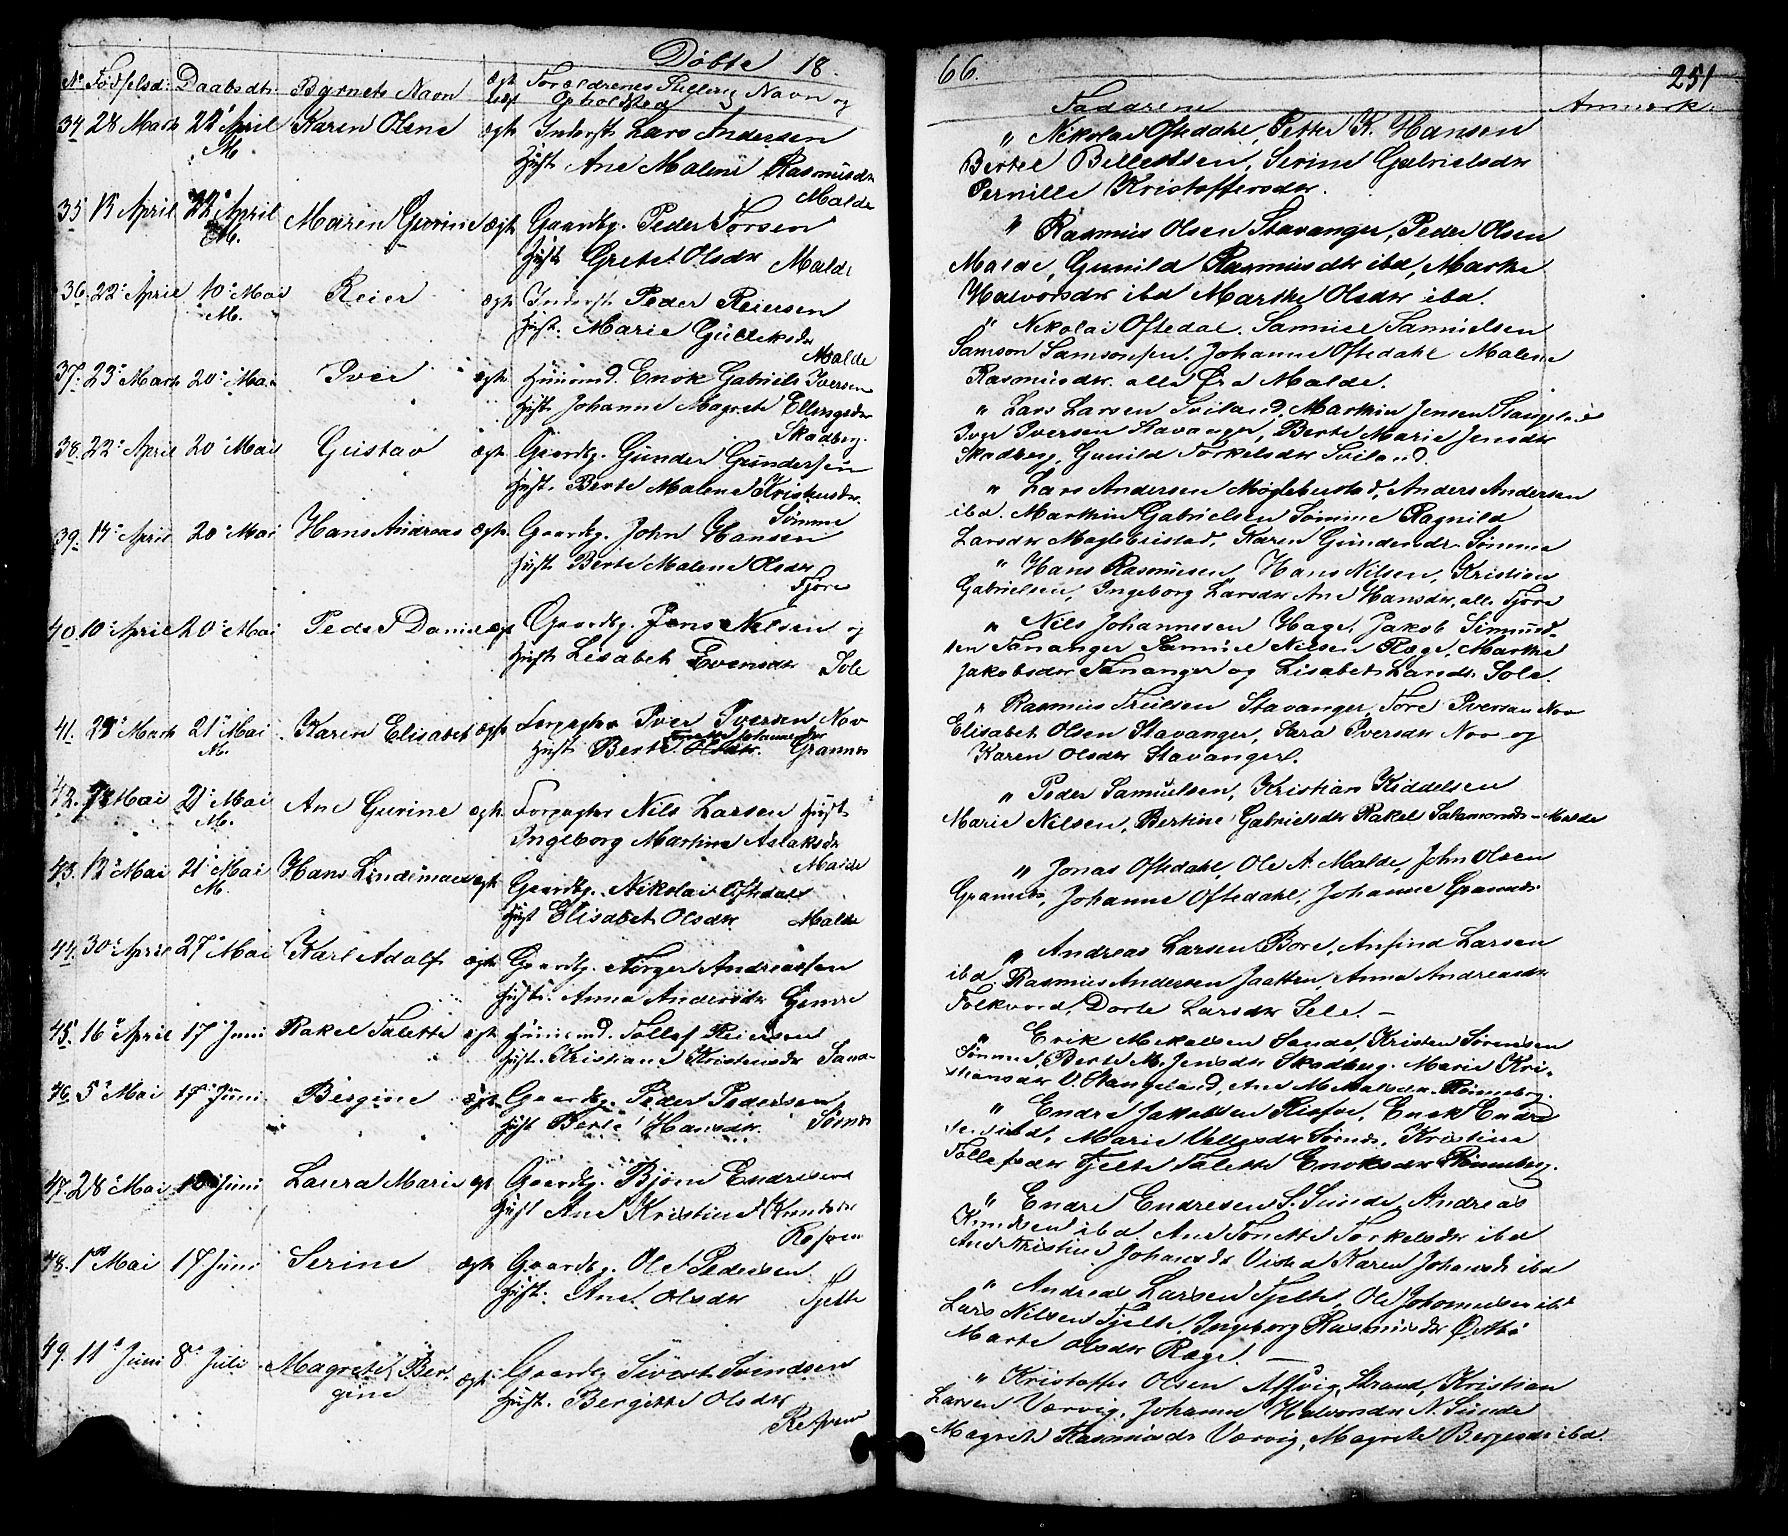 Døbte 18
66.
251
No Fødselsd: Daabsdt. Barnets Navn ægt uægt Forældrenes Stilling, Navn og
Opholdsted
Faddrene Anmerk.
34 28 Marts 22 April Karen Oline ægte Inderst Lars Andersen
M. Hust. Ane Malene Rasmusdr
Malde
" Nikolai Oftedahl, Petter K. Hansen
Bertel Serine Gabrielsdr
Pernille Kristoffersdr.
35 13 April 22 April Maren Gurine ægte Gaardbg. Peder Torsen
M. Hust. Grete Olsdr Malde
" Rasmus Olsen Stavanger, Peder Olsen
Malde, Gunild Rasmusdr ibd, Marthe
Halvorsdr ibd Marthe Olsdr ibd.
36. 22 April 10 Mai Reier ægte Inderst Peder Reiersen
M. Hust. Marie Gulleksdr
Malde
" Nikolai Oftedal. Samuel Samuelsen
Samson Samsonsen. Johanne Oftedahl Malene
Rasmusdr. alle fra Malde.
37. 23 Marts 20 Mai Iver ægte Huusmd. Enok Gabriels Iversen
Hust. Johanne Magrete Ellingsdr
Skadberg.
" Lars Larsen Sviland, Marthin Jensen Stangeland
Iver Iversen Stavanger, Berte Marie Jensdr
Skadberg, Gunild Torkelsdr Sviland.
38. 22 April 20 Mai Gustav ægte Gaardbg. Gunder Gundersen
Hust. Berte Malene Kristensdr.
Sømme
" Lars Andersen Møglebustad, Anders Andersen
ibd. Marthin Gabrielsen Sømme Ragnild
Larsdr Møglebustad, Karen Gundersdr Sømme
39. 14 April 20 Mai Hans Andreas ægte Gaardbg. John Hansen
Hust. Berte Malene Olsdr
Tjøre
" Hans Rasmusen, Hans Nilsen, Kristian
Gabrielsen, Ingeborg Larsdr Ane Hansdr, alle Tjøre
40. 10 April 20 Mai Peder Daniel ægte Gaardbg. Jens Nilsen og
Hust Lisabet Evensdr Sole
" Nils Johannesen Hage, Jakob Simund-
sen Tananger Samuel Nilsen Ræge, Marthe
Jakobsdr Tananger og Lisabet Larsdr Sole.
41. 29 Marts 21 Mai Karen Elisabet ægte Forpagter Iver Iversen Nov
M. Hust. Berte Olsdr. Grannes
" Rasmus Stavanger, Tore Iversen Nov
Elisabet Olsen Stavanger, Sara Iversdr Nov og
Karen Olsdr Stavanger.
42. Mai 21 Mai Ane Gurine ægte Forpagter Nils Larsen Hust.
M. Ingeborg Martine Aslaksdr
Malde
" Peder Samuelsen, Kristian Kiddelsen
Marie Nilsen, Bertine Gabrielsdr Rakel Salamonsdr - Malde
43. 12 Mai 21 Mai Hans Lindeman ægte Gaardbg. Nikolai Oftedal
M. Hust Elisabet Olsdr. Malde
" Jonas Oftedahl, Ole A. Malde, John Olsen
Grannes, Johanne Oftedahl, Johanne
44. 30 April 27 Mai Karl Adolf ægte Gaardbg. Torger Andreassen
Hust. Anna Andersdr
" Andreas Larsen Bore, Anfind Larsen
ibd. Rasmus Andersen Jaatten, Anna Andreasdr
Folkvord, Dorte Larsdr Sele. -
45. 16 April 17 Juni Rakel Talette ægt Huusmd. Tollef Reiersen
Hust. Kristiane Kristensdr
" Erik Mikalsen Sande, Kristen Sørensen
Sømme, Berte M. Jensdr Skadberg. Marie Kri-
stiansdr V. Stangeland, Ane Mikalsdr Rønneberg.
46. 5 Mai 17 Juni Bergine ægt. Gaardbg. Peder Pedersen
Hust Berte Hansdr. Sørnes
" Endre Jakobsen Risför, Enok Endre
sen ibd, Marie Sørnes, Kristine
Tollefsdr Tjelte Talette Enoksdr Rønneberg.
47. 28 Mai Juni Laura Marie ægt Gaardbg. Bjørn Endresen
Hust Ane Kristine Knudsdr
" Endre Endresen S. Sunde, Andreas
Knudsen ibd. Ane Torkelsdr ibd
Ane Kristine Johansdr Visted Karen Johansdr ibd
48. 1 Mai 17 Juni Serine ægte Gaardbg. Ole Pedersen
Hust. Ane Olsdr Tjelte
" Andreas Larsen Tjelte, Ole Johannesen ibd
Lars Nilsen Tjelte, Ingeborg Rasmusdr
Marte Olsdr Ræge. -
49. 11 Juni 8 Juli Magrete Ber- ægt. Gaardbg Sivert Svindsen
gine Hust. Bergitte Olsdr
" Kristoffer Olsen Strand, Kristian
Larsen Værvig, Johanne Halvorsdr N. Sunde
Magrete Rasmusdr Værvig, Magrete ibd.